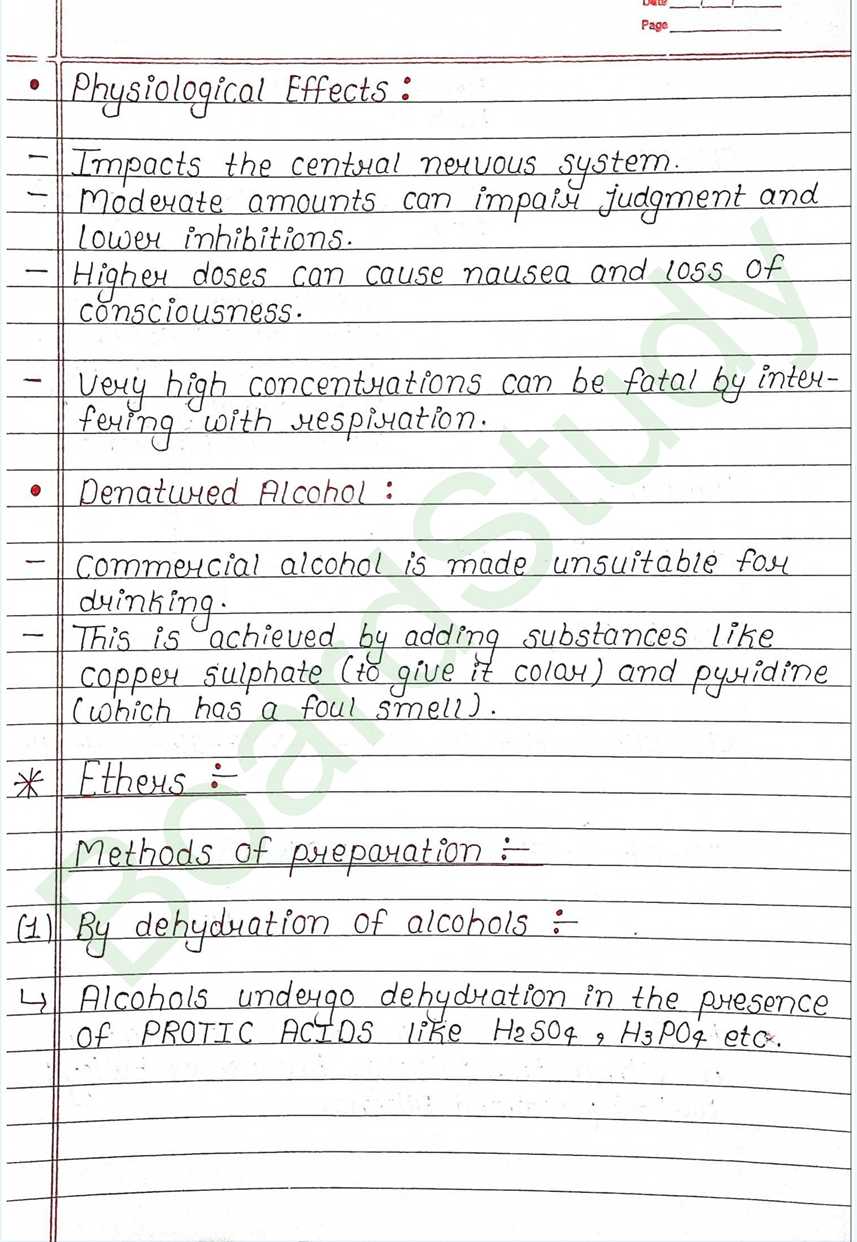 Date / /
Page
• Physiological Effects :
- Impacts the central nervous system.
- Moderate amounts can impair judgment and
lower inhibitions.
- Higher doses can cause nausea and loss of
consciousness.
- Very high concentrations can be fatal by inter-
fering with respiration.
• Denatured Alcohol :
- Commercial alcohol is made unsuitable for
drinking.
- This is achieved by adding substances like
copper sulphate (to give it color) and pyridine
(which has a foul smell).
* Ethers :-
Methods of preparation :-
(1) By dehydration of alcohols :-
↳ Alcohols undergo dehydration in the presence
of PROTIC ACIDS like H2SO4, H3PO4 etc.
BoardStudy